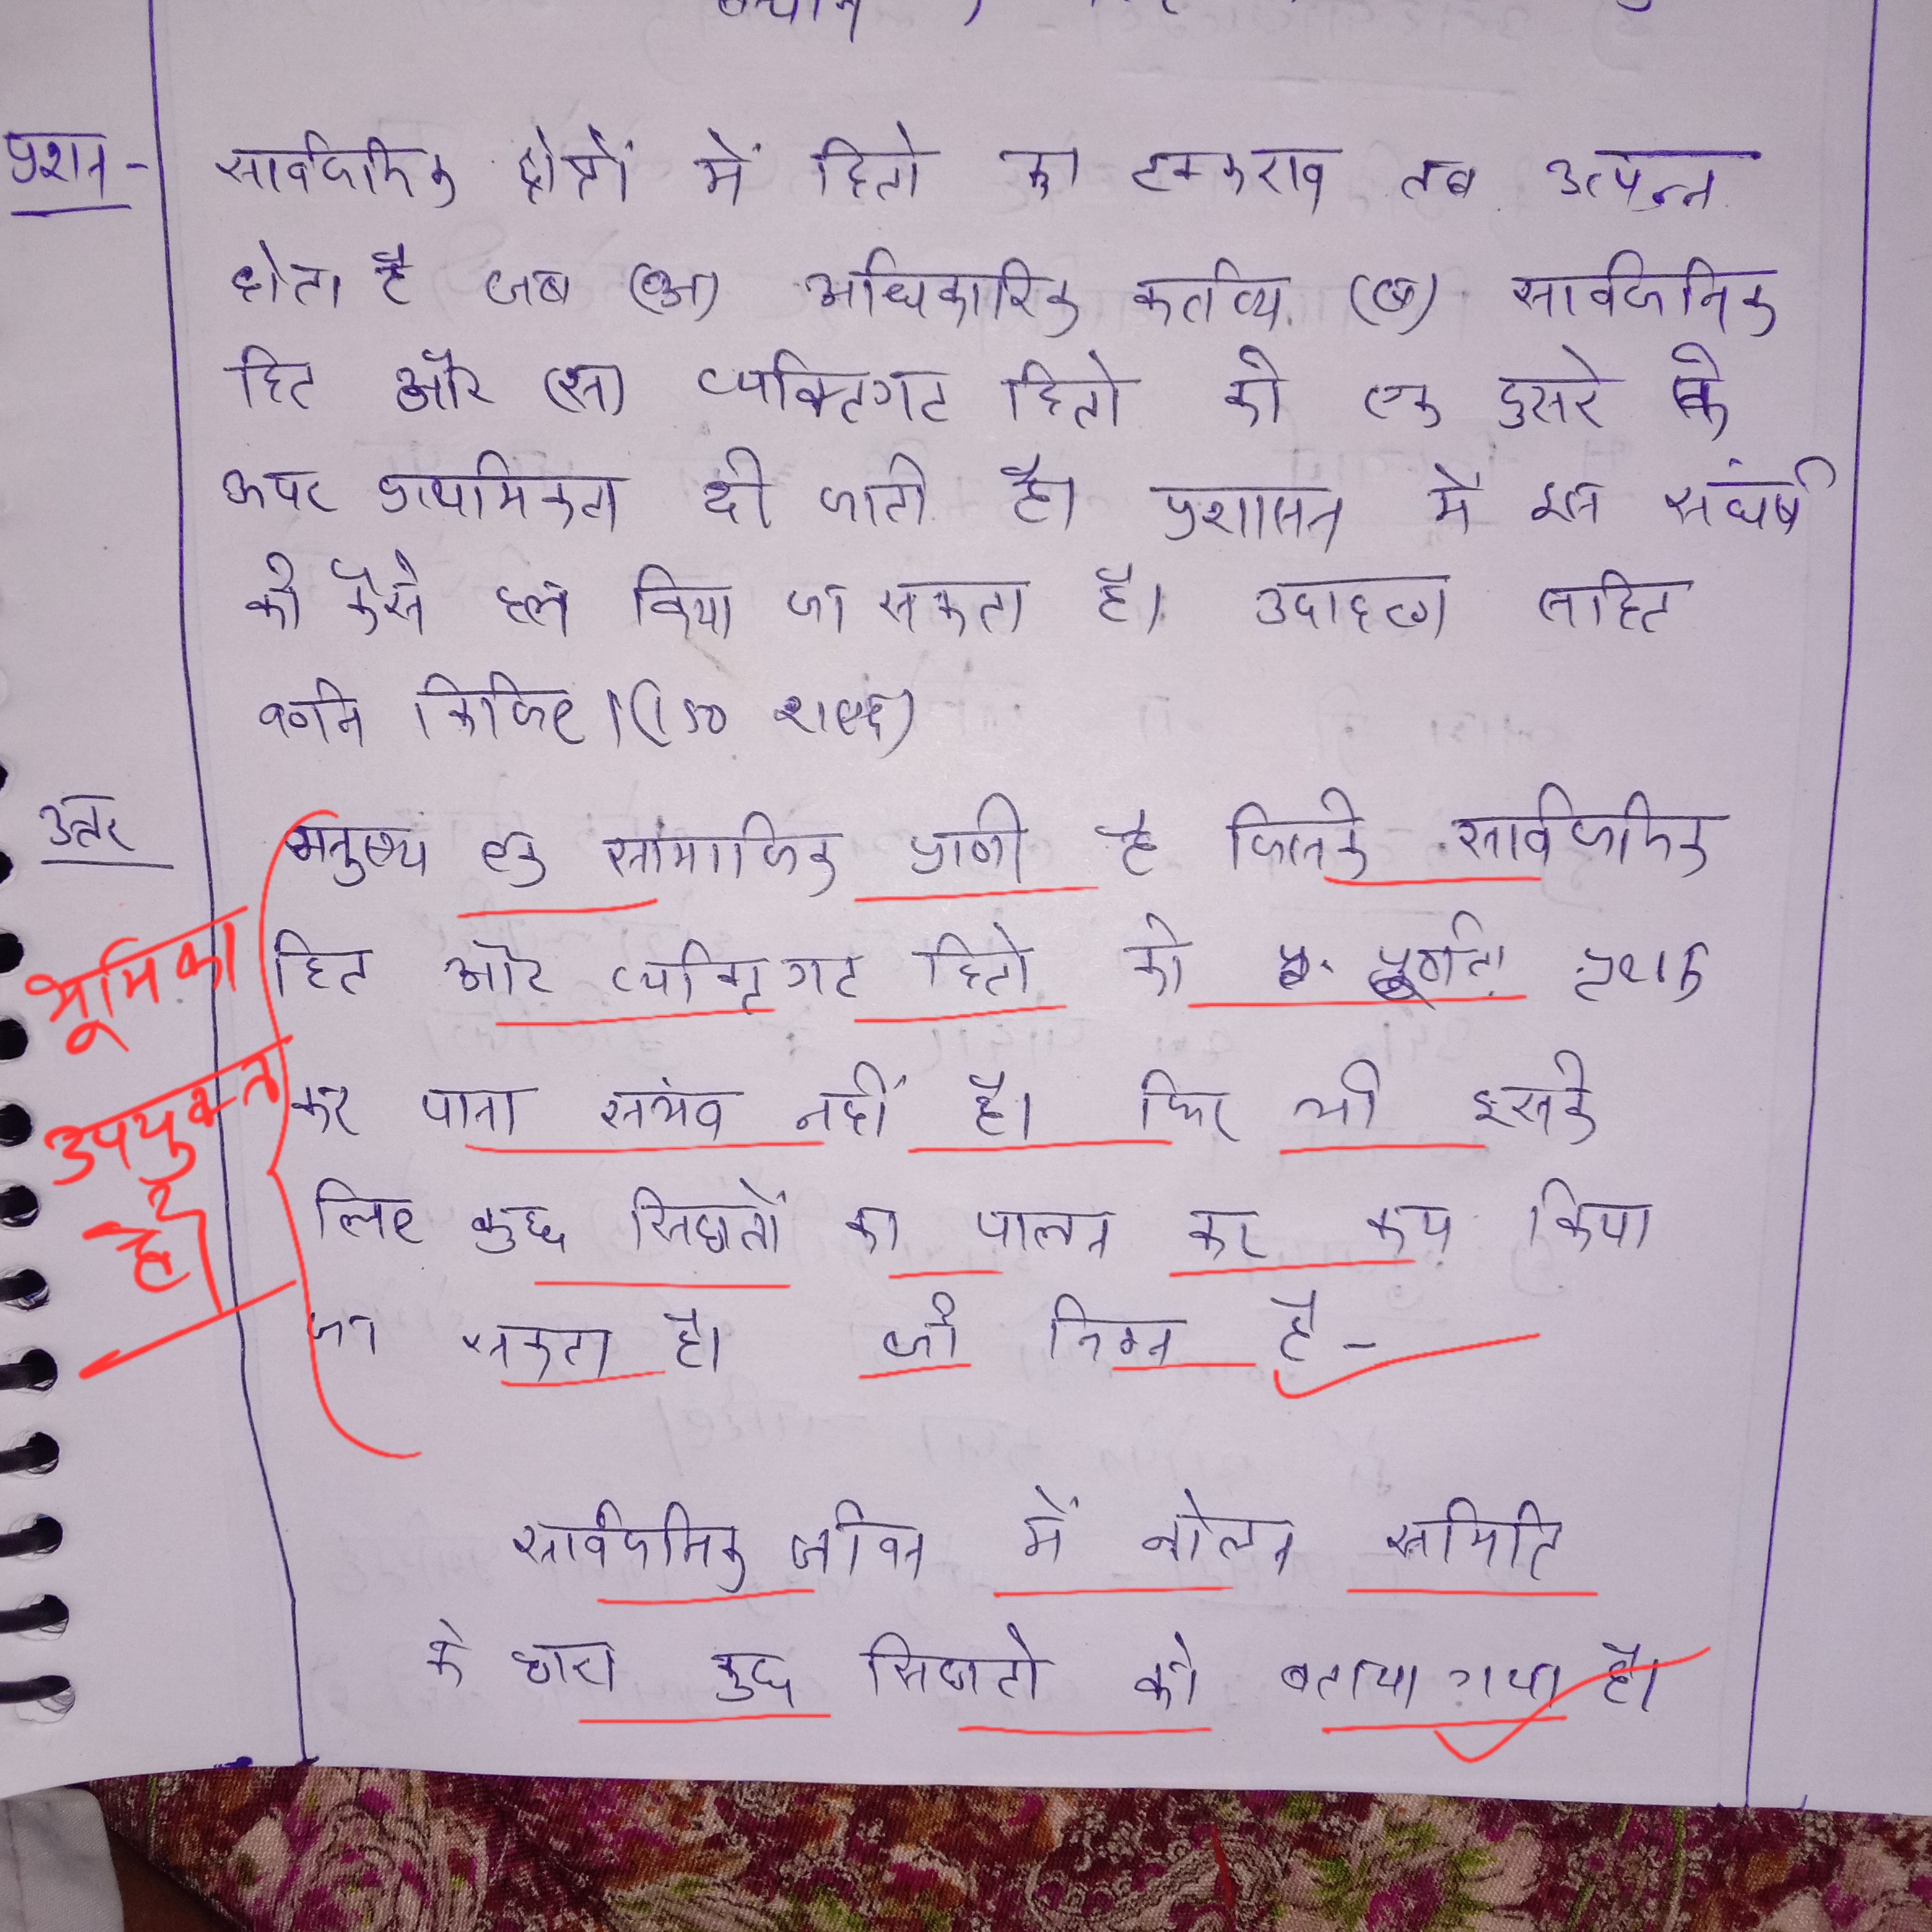 प्रशन - सार्वजनिक क्षेत्रों में हितो का टकराव तब उत्पन्न
होता है जब (अ) अधिकारिक कर्तव्य (ब) सार्वजनिक
हित और (स) व्यक्तिगत हितो को एक दुसरे के
ऊपर प्राथमिकता दी जाती है। प्रशासन में इस संघर्ष
को कैसे हल किया जा सकता है। उदाहरण सहित
वर्णन किजिए। (150 शब्द)
उत्तर मनुष्य एक सामाजिक प्राणी है जिसके सार्वजनिक
हित और व्यक्तिगत हितो को पूर्णता पृथक
भूमिका
कर पाना सभंव नहीं है। फिर भी इसके
उपयुक्त
लिए कुछ सिद्धातों का पालन कर कम किया
है।
जा सकता है। जो निम्न है -
सार्वजनिक जीवन में नोलन समिति
के द्वारा कुछ सिद्धातो को बताया गया है।